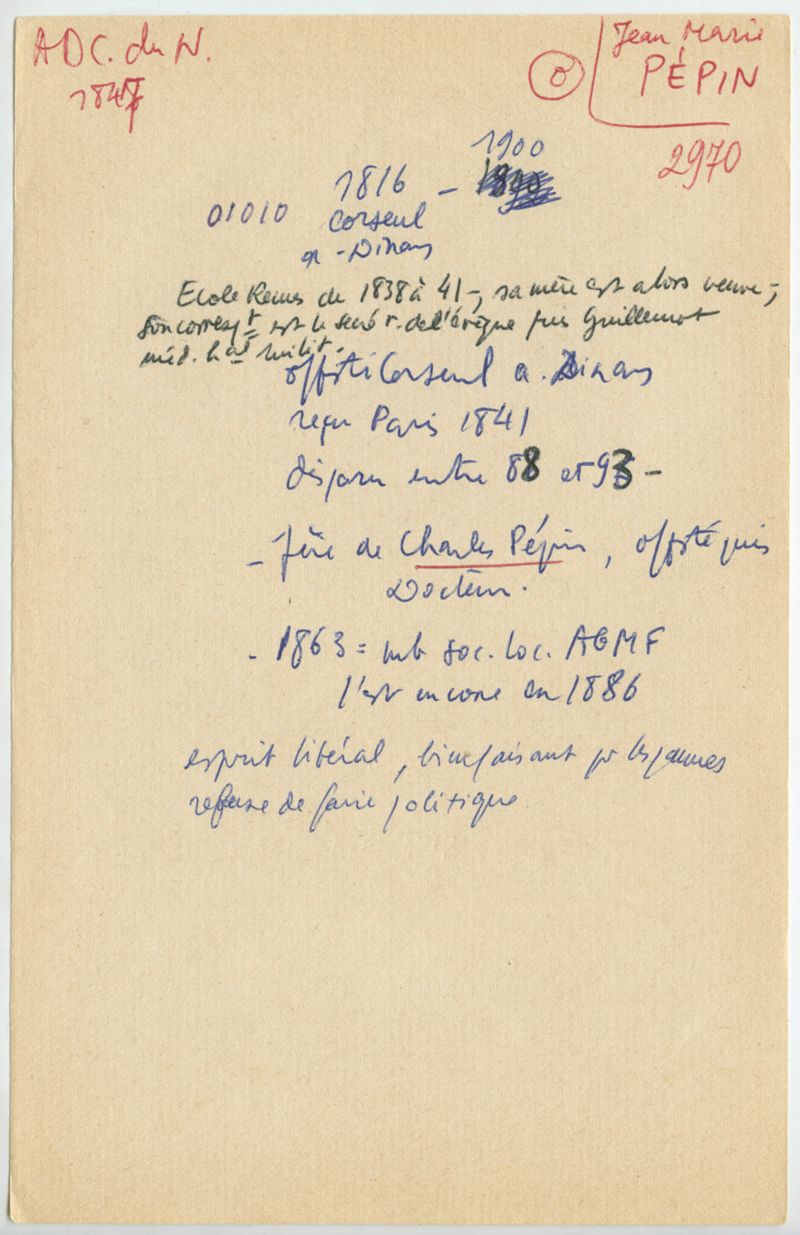 ADC. du N.
1847
Jean Marie
PÉPIN
0
2970
1900
1816 -
01010 Corseul
a. - Dinan
Ecole Rennes de 1838 à 41 -, sa mère est alors veuve -,
son correspt est le secré r. de l'évêque puis Guillemot
méd. hal milit.
offsté Corseul a. Dinan
reçu Paris 1841
disparu entre 88 et 93 -
- frère de Charles Pépin, offsté puis
Docteur.
- 1863 = mb soc. loc. AGMF
l'est encore en 1886
esprit libéral, bienfaisant pr les pauvres
refuse de faire politique